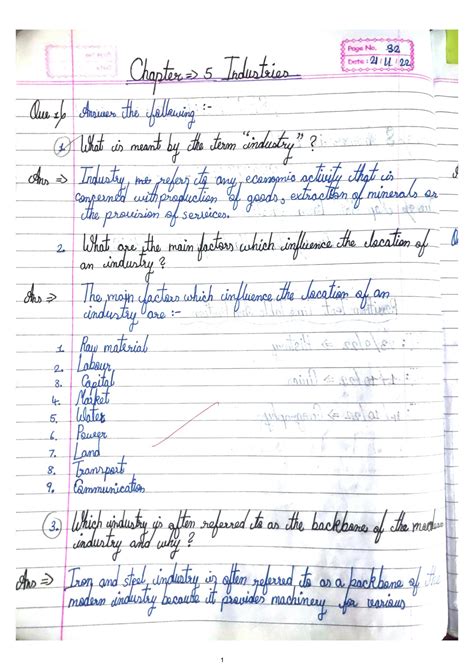 Page No. 82
Date: 21/11/22
Chapter => 5 Industries
Que 1/o Answer the following :-
1. What is meant by the term "industry" ?
Ans => Industry refers to any economic activity that is
concerned with production of goods, extraction of minerals or
the provision of services.
2. What are the main factors which influence the location of
an industry ?
Ans => The main factors which influence the location of an
industry are :-
1. Raw material
2. Labour
3. Capital
4. Market
5. Water
6. Power
7. Land
8. Transport
9. Communication
3. Which industry is often referred to as the backbone of the
industry and why ?
Ans => Iron and steel industry is often referred to as a backbone of
modern industry because it provides machinery for various
1